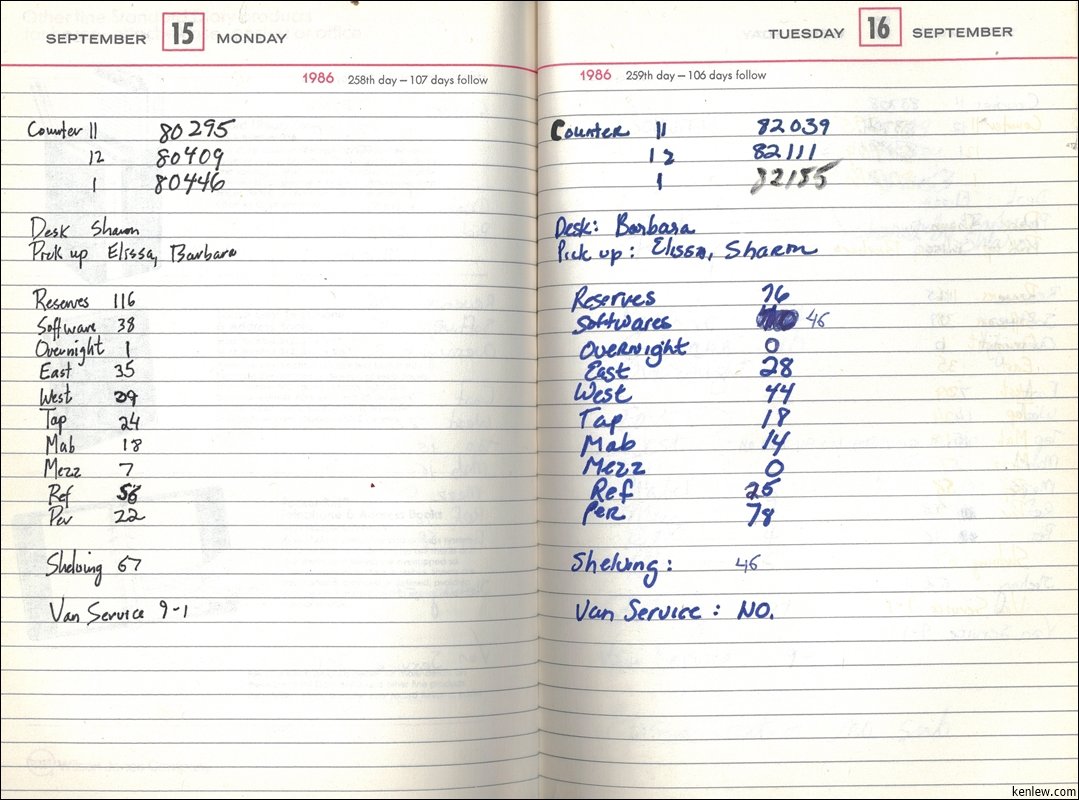 SEPTEMBER 15 MONDAY
1986 258th day — 107 days follow
Counter 11 80295
12 80409
1 80446
Desk Sharon
Pick up Elissa, Barbara
Reserves 116
Software 38
Overnight 1
East 35
West 29
Tap 24
Mab 18
Mezz 7
Ref 56
Per 22
Shelving 67
Van Service 9-1
TUESDAY 16 SEPTEMBER
1986 259th day — 106 days follow
Counter 11 82039
12 82111
1 82185
Desk: Barbara
Pick up: Elissa, Sharon
Reserves 76
Softwares 46
Overnight 0
East 28
West 44
Tap 18
Mab 14
Mezz 0
Ref 25
Per 78
Shelving: 46
Van Service: NO.
kenlew.com